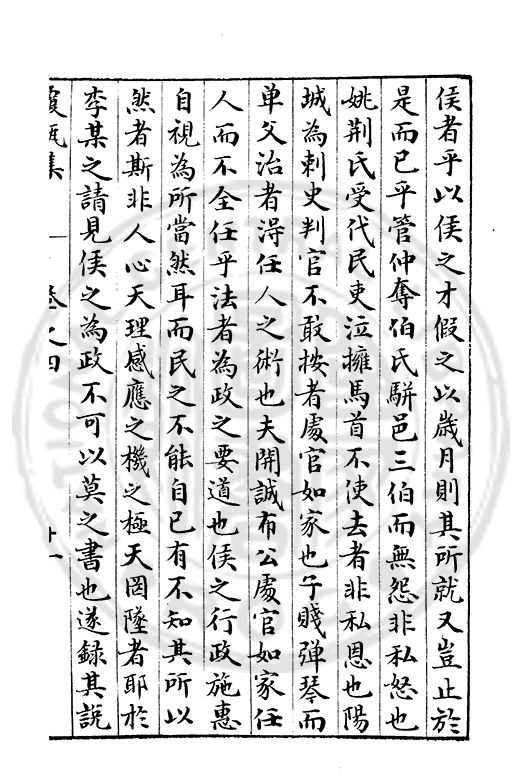 侯者乎以侯之才假之以歲月則其所就又豈止於
是而已乎管仲奪伯氏駢邑三伯而無怨非私怒也
姚荆氏受代民吏泣擁馬首不使去者非私恩也陽
城為刺史判官不敢按者處官如家也子賤彈琴而
单父治者得任人之術也夫開誠布公處官如家任
人而不全任乎法者為政之要道也侯之行政施惠
自視為所當然耳而民之不能自已有不知其所以
然者斯非人心天理感應之機之極天罔墜者耶於
李某之請見侯之為政不可以莫之書也遂録其說
霞 集 卷之四 十一